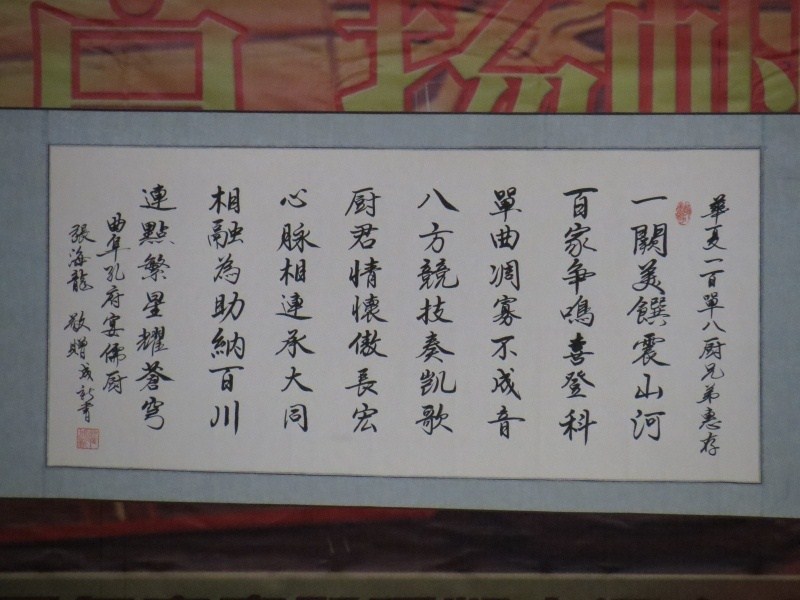 華夏一百單八厨兄弟惠存
一闋美饌震山河
百家争鳴喜登科
單曲凋寡不成音
八方競技奏凱歌
厨君情懷傲長宏
心脉相連承大同
相融為助納百川
連點繁星耀蒼穹
曲阜孔府宴儒厨
張海龍 敬贈 成新書